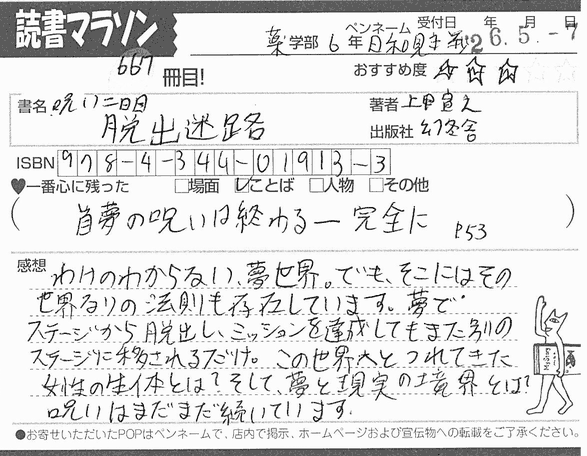 読書マラソン
薬学部 6年 ペンネーム 受付日 年 月 日
26.5.-7
667冊目! おすすめ度 ☆☆☆
書名 呪い二日目 著者 上甲宣之
脱出迷路 出版社 幻冬舎
ISBN 978-4-344-01913-3
♥一番心に残った □場面 ☑ことば □人物 □その他
(首夢の呪いは終わる―完全に P53)
感想 わけのわからない、夢世界。でも、そこにはその
世界なりの法則も存在しています。夢で
ステージから脱出し、ミッションを達成してもまた別の
ステージに移されるだけ。この世界へとつれてきた
女性の生体とは?そして、夢と現実の境界とは?
呪いはまだまだ続いています。
●お寄せいただいたPOPはペンネームで、店内で掲示、ホームページおよび宣伝物への転載をご了承ください。